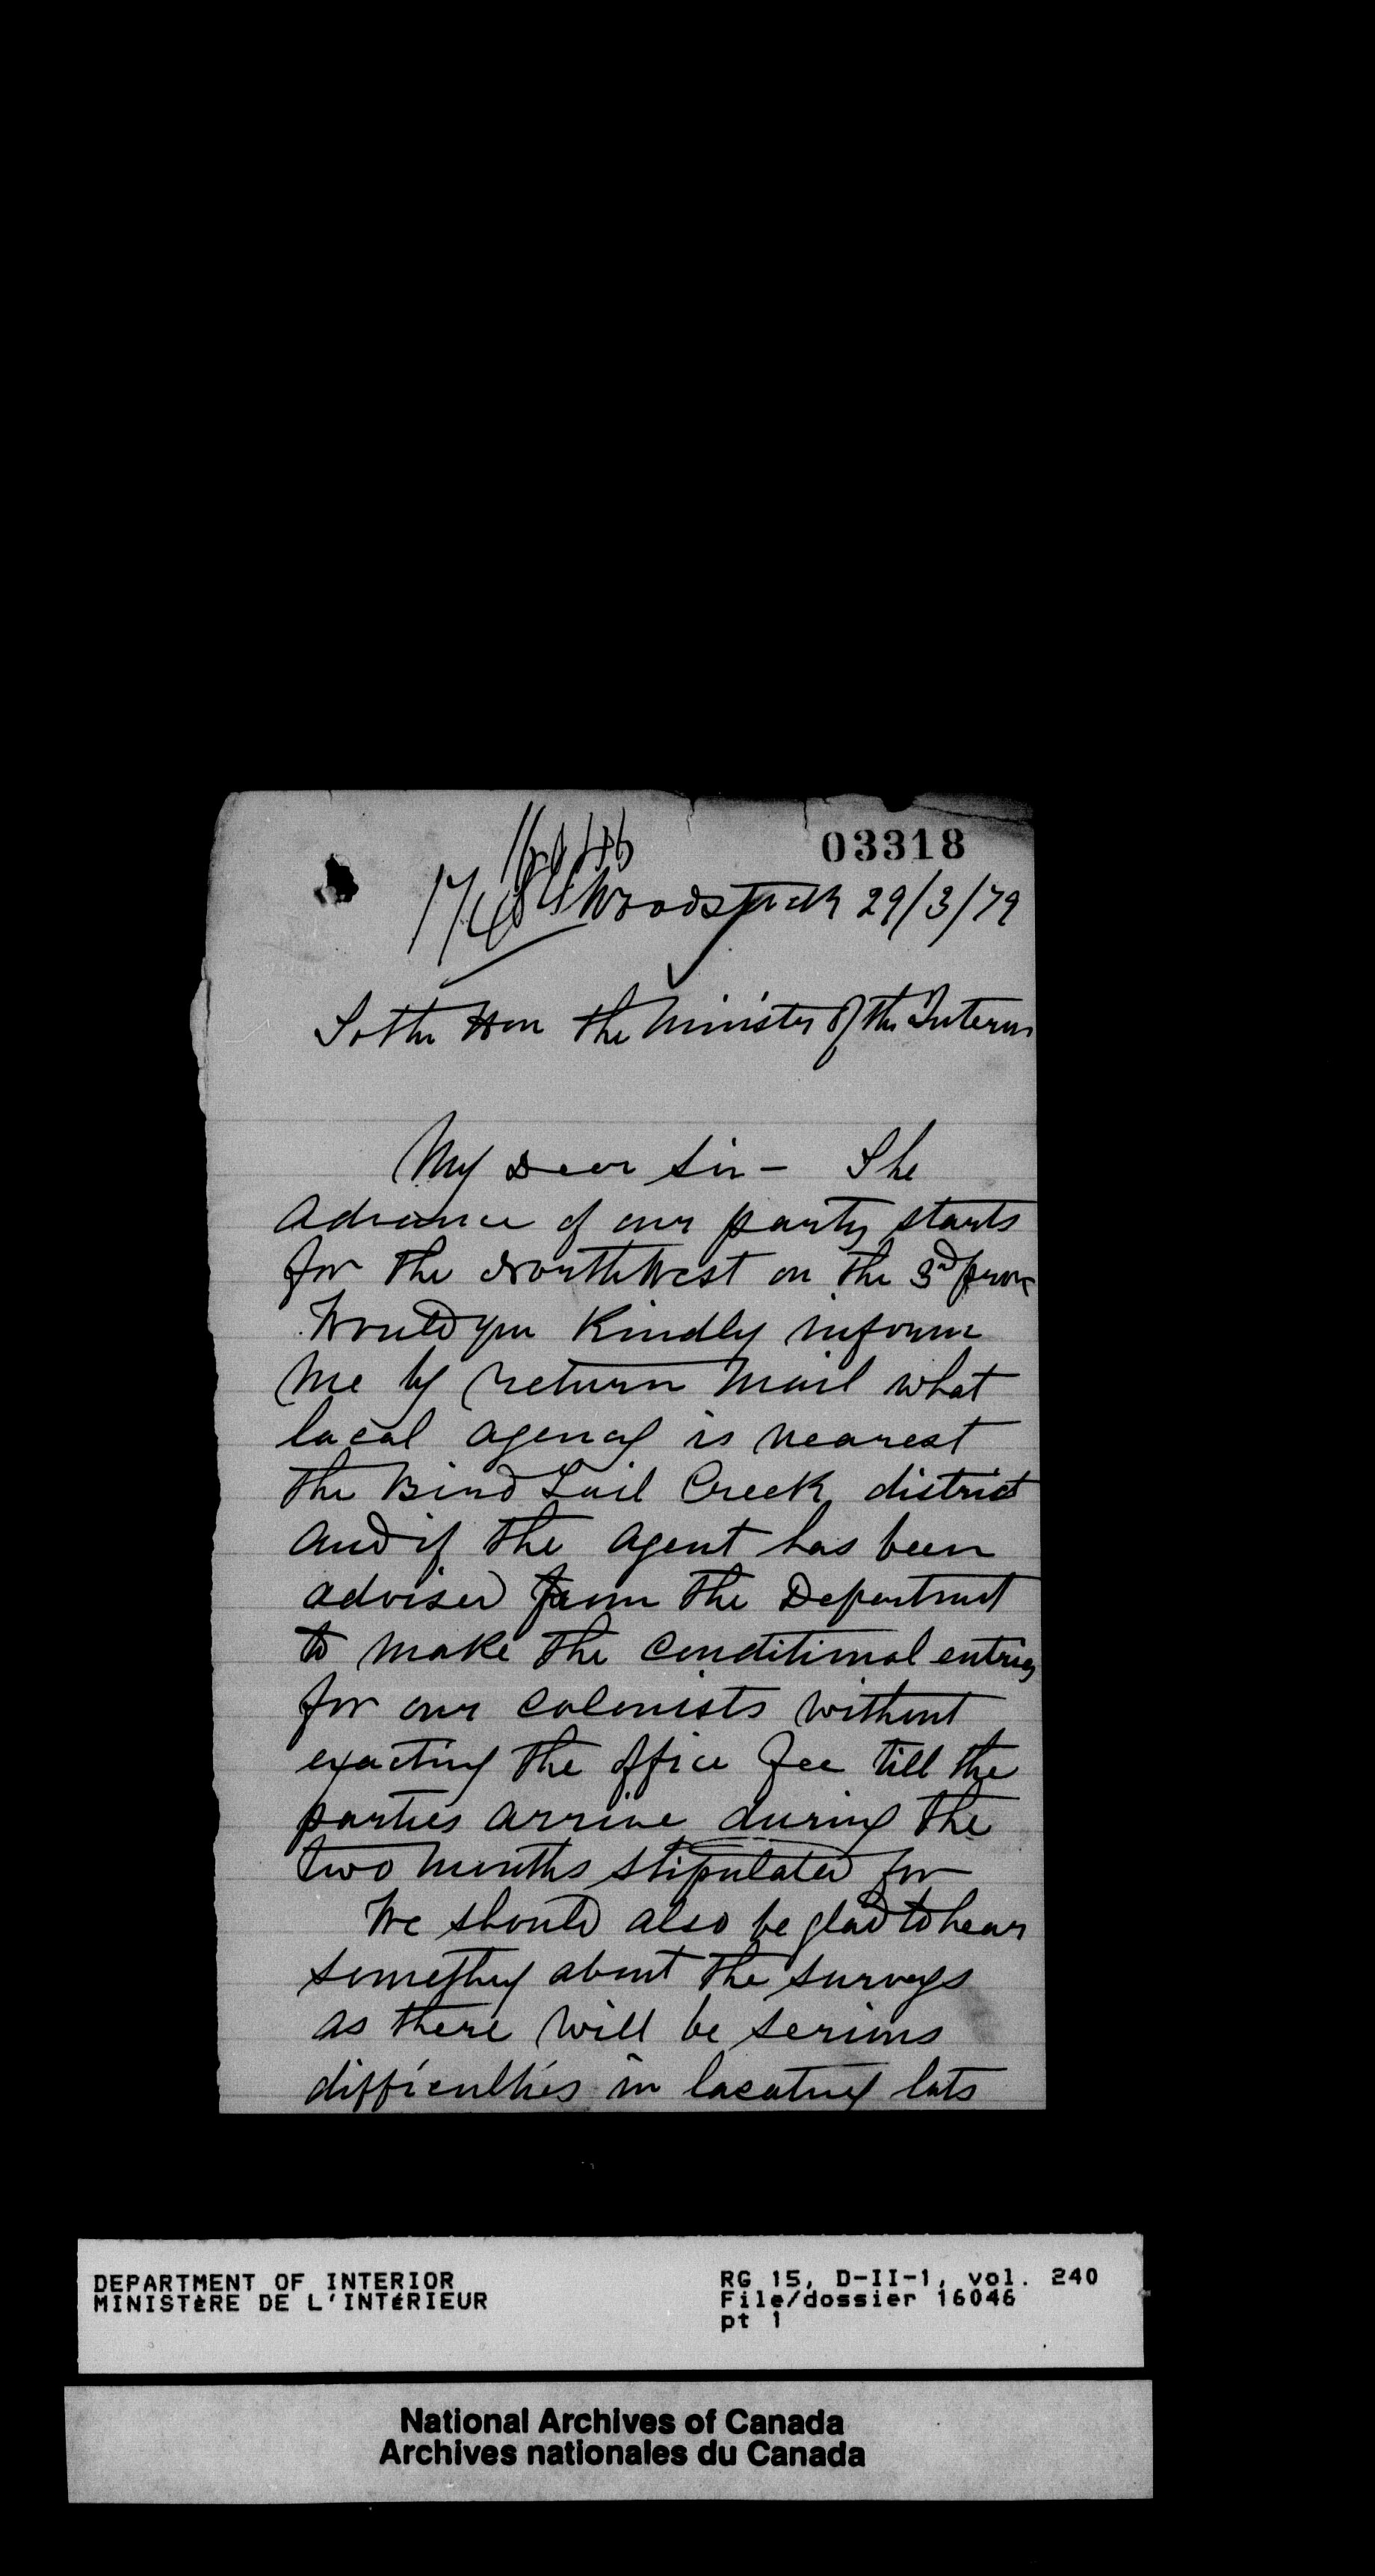 03318
16046
Woodstock 29/3/79
To the Hon the Minister of the Interior
My Dear Sir - The
advance of our party starts
for the NorthWest on the 3rd prox
Would you Kindly inform
me by return mail what
local agency is nearest
the Bird Tail Creek district
and if the agent has been
advised from the Department
to make the conditional entries
for our colonists without
exacting the office fee till the
parties arrive during the
two months stipulated for
We should also be glad to hear
something about the surveys
as there will be serious
difficulties in locating lots
DEPARTMENT OF INTERIOR
MINISTèRE DE L'INTéRIEUR
RG 15, D-II-1, vol. 240
File/dossier 16046
pt 1
National Archives of Canada
Archives nationales du Canada